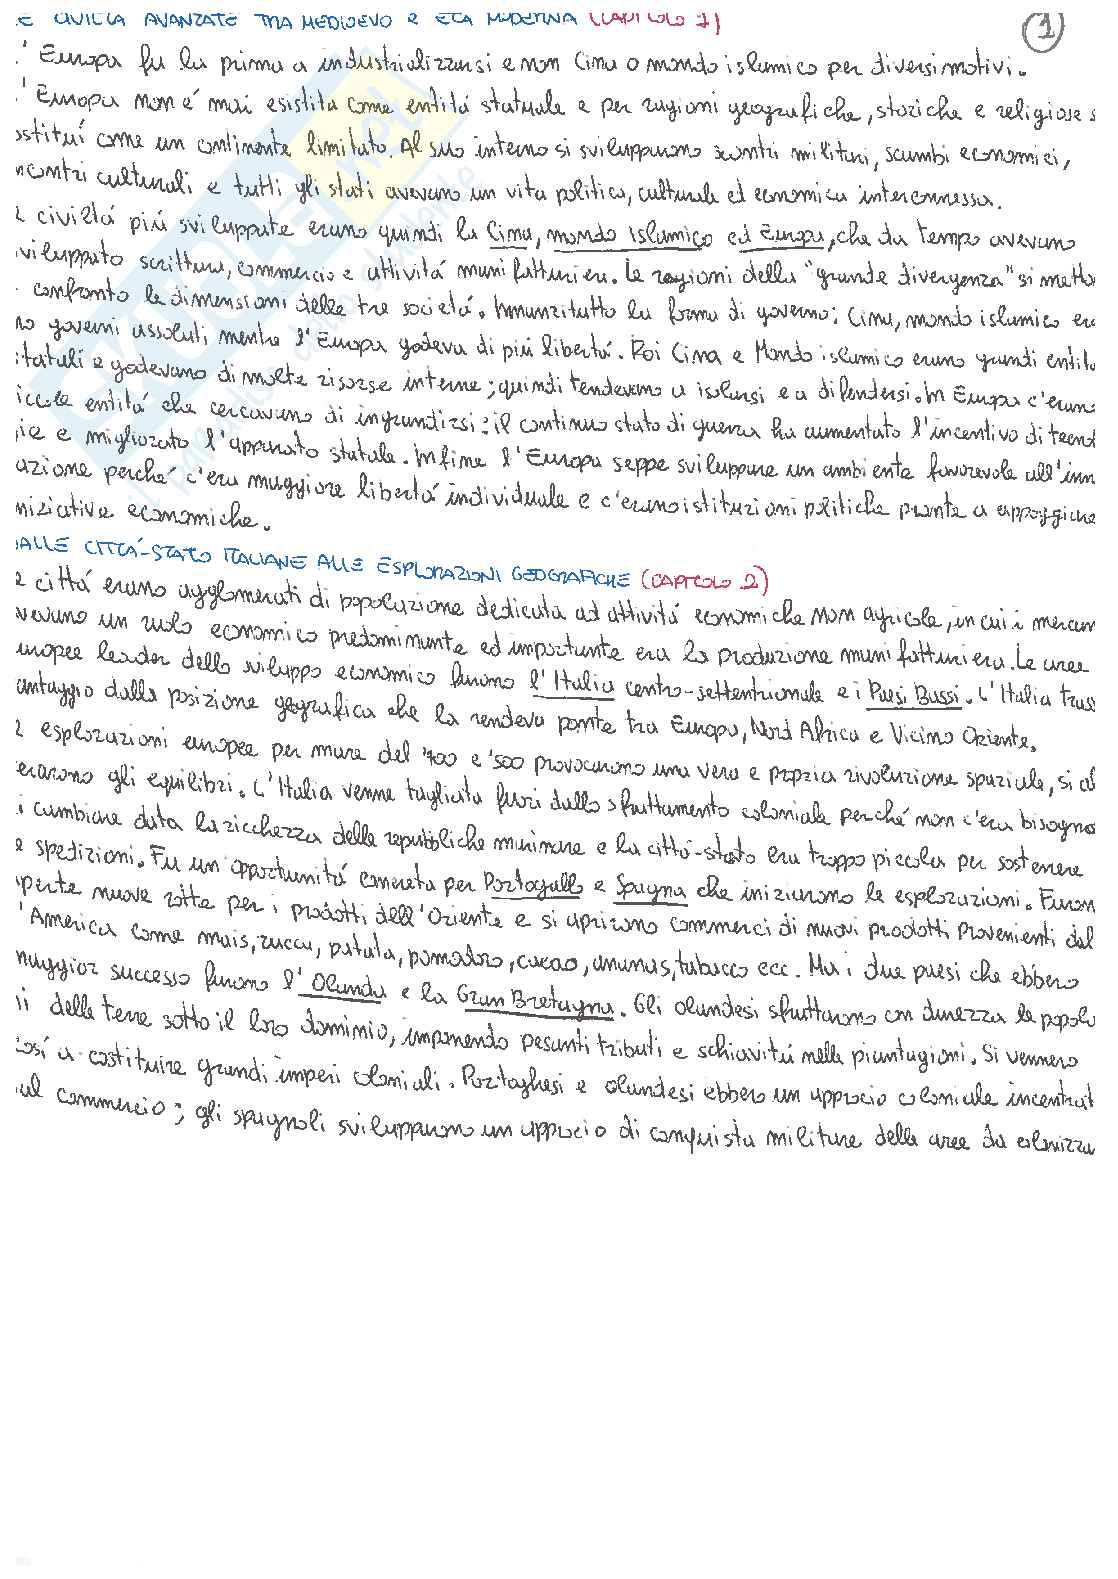 E CIVILTÀ AVANZATE TRA MEDIOEVO E ETÀ MODERNA (CAPITOLO 1)
1
' Europa fu la prima a industrializzarsi e non Cina o mondo islamico per diversi motivi.
' Europa non é mai esistita come entitá statuale e per ragioni geografiche, storiche e religiose s
ostituí come un continente limitato. Al suo interno si svilupparono scontri militari, scambi economici,
ncontri culturali e tutti gli stati avevano un vita politica, culturale ed economica interconnessa.
e civiltá piú sviluppate erano quindi la Cina, mondo islamico ed Europa, che da tempo avevano
viluppato scrittura, commercio e attivitá manifatturiera. Le ragioni della "grande divergenza" si metto
confronto le dimensioni delle tre societá. Innanzitutto la forma di governo: Cina, mondo islamico era
no governi assoluti, mentre l'Europa godeva di piú libertá. Poi Cina e Mondo islamico erano grandi entitá
statali e godevano di molte risorse interne; quindi tendevano a isolarsi e a difendersi. In Europa c'erano
iccole entitá che cercavano di ingrandirsi: il continuo stato di guerra ha aumentato l'incentivo di tecno
gie e migliorato l'apparato statale. Infine l'Europa seppe sviluppare un ambiente favorevole all'inn
azione perché c'era maggiore libertá individuale e c'erano istituzioni politiche pronte a appoggiare
niziative economiche.
DALLE CITTÁ-STATO ITALIANE ALLE ESPLORAZIONI GEOGRAFICHE (CAPITOLO 2)
e cittá erano agglomerati di popolazione dedicata ad attivitá economiche non agricole, in cui i mercan
vevano un ruolo economico predominante ed importante era la produzione manifatturiera. Le aree
uropee leader dello sviluppo economico furono l'Italia centro-settentrionale e i Paesi Bassi. L'Italia trass
antaggio dalla posizione geografica che la rendeva ponte tra Europa, Nord Africa e Vicino Oriente.
e esplorazioni europee per mare del '400 e '500 provocarono una vera e propria rivoluzione spaziale, si al
erarono gli equilibri. L'Italia venne tagliata fuori dallo sfruttamento coloniale perché non c'era bisogno
i cambiare data la ricchezza delle repubbliche marinare e la cittá-stato era troppo piccola per sostenere
e spedizioni. Fu un'opportunitá concreta per Portogallo e Spagna che iniziarono le esplorazioni. Furon
perte nuove rotte per i prodotti dell'Oriente e si aprirono commerci di nuovi prodotti provenienti dal
'America come mais, zucca, patata, pomodoro, cacao, ananas, tabacco ecc. Ma i due paesi che ebbero
maggior successo furono l'Olanda e la Gran Bretagna. Gli olandesi sfruttarono con durezza le popola
ni delle terre sotto il loro dominio, imponendo pesanti tributi e schiavitú nelle piantagioni. Si vennero
cosí a costituire grandi imperi coloniali. Portoghesi e olandesi ebbero un approcio coloniale incentrat
sul commercio; gli spagnoli svilupparono un approcio di conquista militare delle aree da colonizza